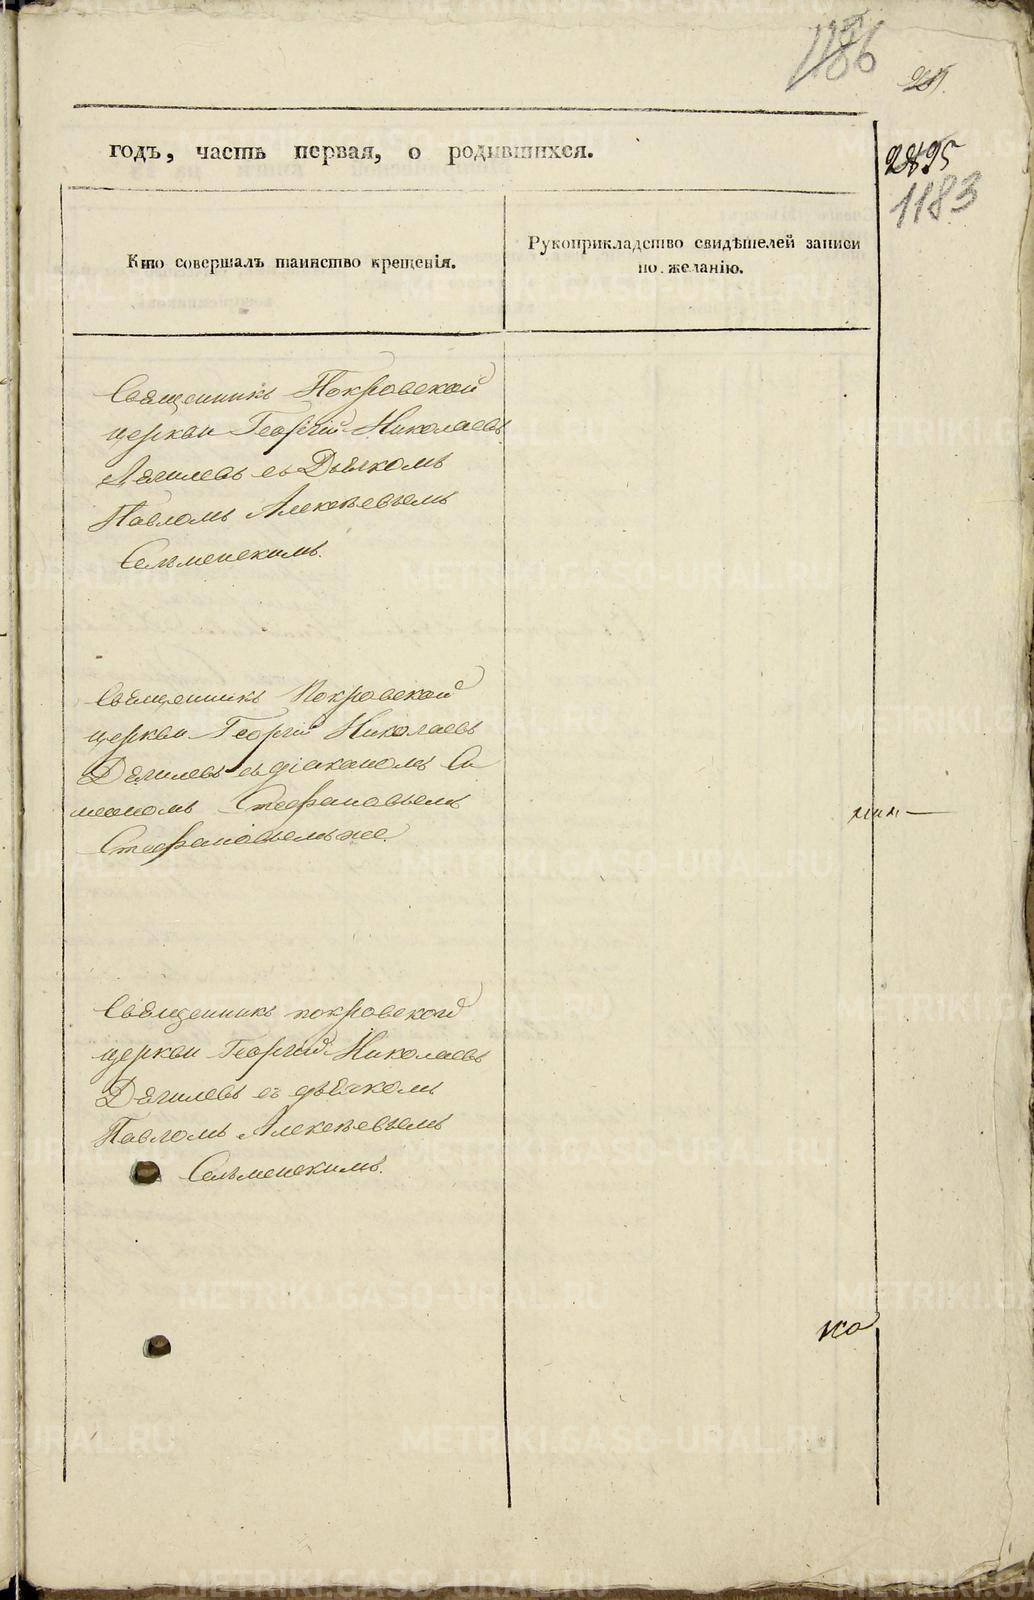 1186
годъ, часть первая, о родившихся.
1183
Кто совершалъ таинство крещенія.
Рукоприкладство свидѣтелей записи
по желанію.
Священникъ Покровской
церкви Георгій Николаевъ
Дягилевъ съ Дьячкомъ
Павломъ Алексѣевымъ
Сельменскимъ.
Священникъ Покровской
церкви Георгій Николаевъ
Дягилевъ съ діакономъ Си
меономъ Стефановымъ
Стефановымъ же.
Священникъ покровской
церкви Георгій Николаевъ
Дягилевъ съ дьячкомъ
Павломъ Алексѣевымъ
Сельменскимъ.
METRIKI.GASO-URAL.RU